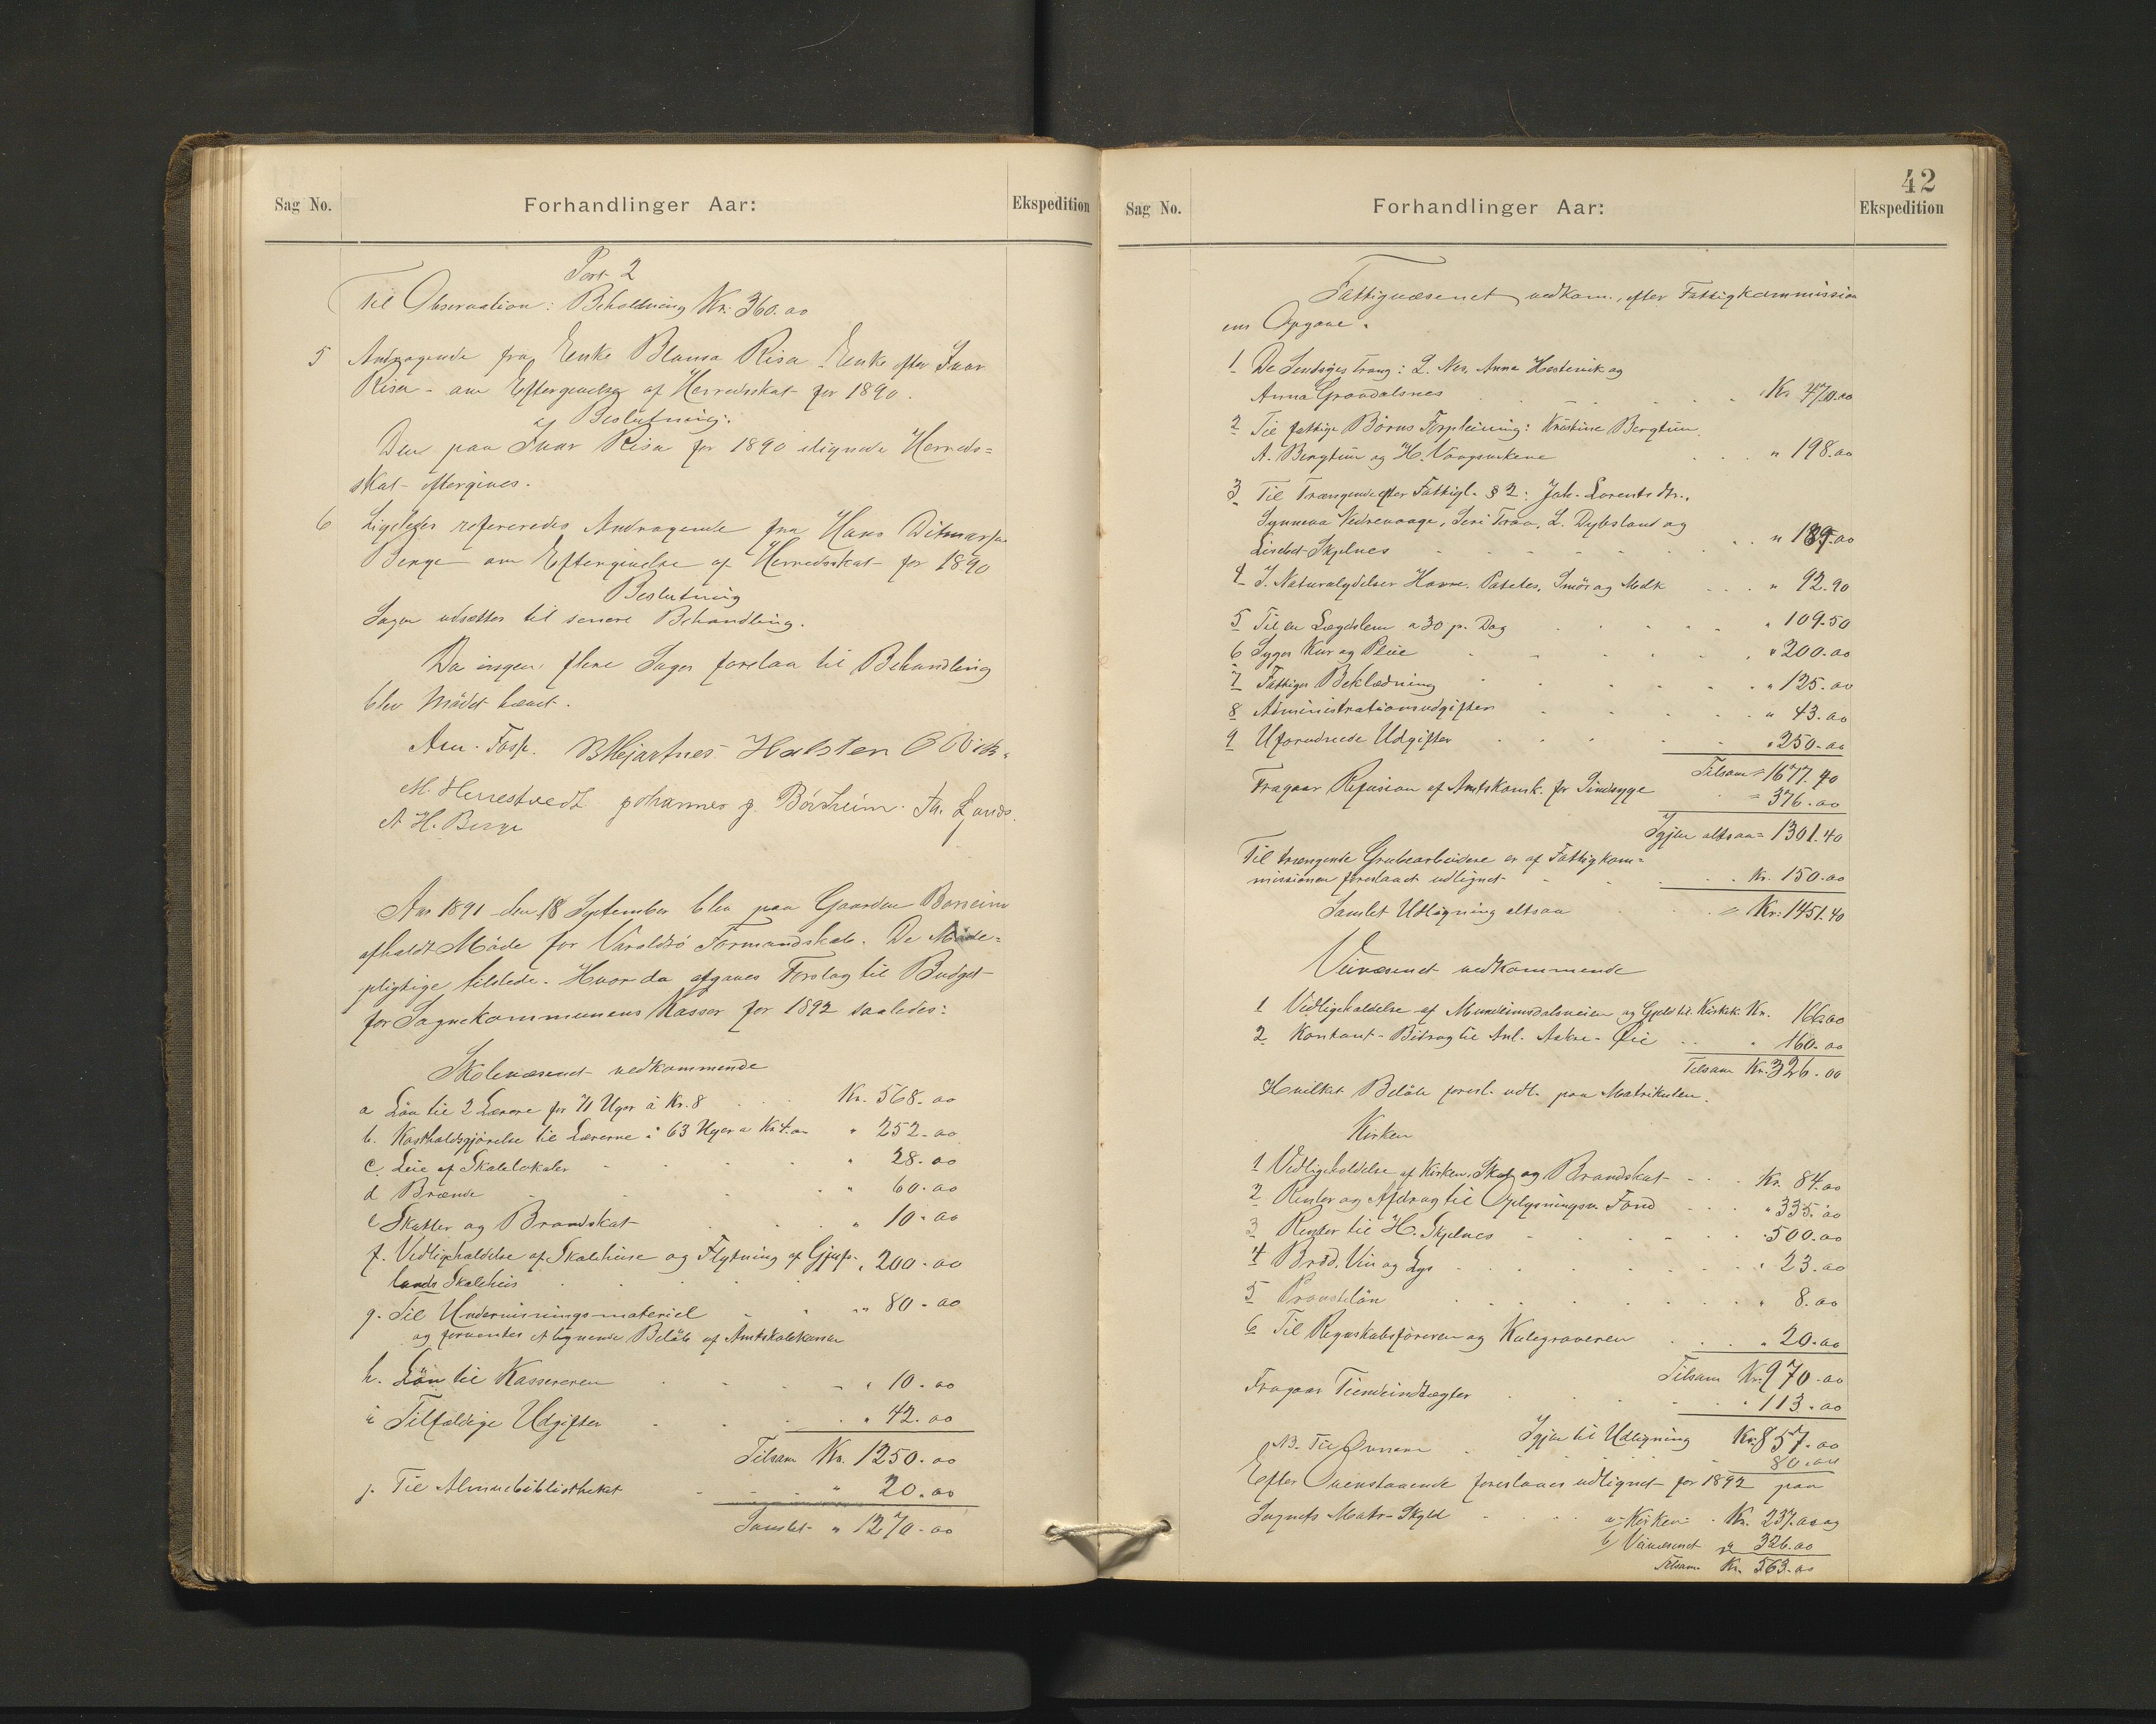 Sag No.
Forhandlinger Aar:
Ekspedition
Post 2
Til Observation: Beholdning Kr. 360.00
5 Andragende fra Enke Blansa Risa Enke efter Ivar
Risa - om Eftergivelse af Herredsskat for 1890.
Beslutning:
Den paa Ivar Risa for 1890 ilignede Herreds=
skat eftergives.
6 Ligeledes refereredes Andragende fra Hans Ditmarsen
Berge om Eftergivelse af Herredsskat for 1890
Beslutning
Sagen udsættes til senere Behandling.
Da ingen flere Sager forelaa til Behandling
blev Mödet hævet.
H. Berge
Aar 1891 den 18 September blev paa Gaarden
afholdt Möde for Varaldsö Formandskab. De Möde=
pligtige tilstede. Hvor da afgaves Forslag til Budget
for Sognekommunens Kasser for 1892 saaledes:
Skolevæsenet vedkommende
a Lön til 2 Lærere for 71 Uger à Kr. 8 Kr. 568.00
b. Kostholdsgjörelse til Lærerne i 63 Uger a Kr 4.00 " 252.00
c. Leie af Skolelokaler " 28.00
d Brænde " 60.00
e Skatter og Brandskat " 10.00
f. Vedligeholdelse af Skolehuse og Flytning af Gjuf- " 200.00
lands Skolehus
g. Til Undervisningsmateriel " 80.00
og forventes et lignende Belöb af Amtskolekassen
h. Lön til Kassereren " 10.00
i Tilfældige Udgifter " 42.00
Tilsam Kr. 1250.00
j. Til Almuebibliotheket " 20.00
Samlet " 1270.00
42
Sag No.
Forhandlinger Aar:
Ekspedition
Fattigvæsenet vedkom., efter Fattigkommission
ens Opgave.
1 De Sindsyges Trang: L. Nes, Anna Hestevik og
Anna Kr. 470.00
2 Til fattige Börns Forpleining: Kristine Bergtun,
A. Bergtun og H. " 198.00
3 Til Trængende efter Fattigl. § 2: Joh. Lorents
Synneva Nedrevaage, Seri L. Dybsland og
Lisbet Skjelnes " 189.00
4 I. Naturalydelser Havre, Poteter, Smör og Melk " 92.90
5 Til en Lægdslem a 30 p. Dag " 109.50
6 Syges Kur og Pleie " 200.00
7 Fattiges Beklædning " 125.00
8 Administrationsudgifter " 43.00
9 Uforudseede Udgifter " 250.00
Tilsam = 1677.40
Fragaar Refusion af Amtskomk. for Sindsyge = 376.00
Igjen altsaa = 1301.40
Til trængende Grubearbeidere er af Fattigkom=
missionen foreslaaet udlignet Kr. 150.00
Samlet Udligning altsaa = Kr. 1451.40
Veivæsenet vedkommende
1 Vedligeholdelse af Mundeimsdalsveien og Gjeld til Kr. 166.00
2 Kontant-Bidrag til Anl. " 160.00
Tilsam Kr. 326.00
Hvilket Belöb foresl. udl. paa Matrikulen.
Kirken
1 Vedligeholdelse af Kirken, Skat og Brandskat Kr. 84.00
2 Renter og Afdrag til Oplysningsv. Fond " 335.00
3 Renter til H. Skjelnes " 500.00
4 Bröd, Vin og Lys " 23.00
5 " 8.00
6 Til Regnskabsföreren og Kulegraveren " 20.00
Tilsam Kr. 970.00
Fragaar Tiendeindtægter " 113.00
Igjen til Udligning Kr. 857.00
NB. Til 80.00
Efter Ovenstaaende foreslaaes udlignet for 1892 paa
Sognets Matr-Skyld a Kirken Kr. 237.00 og
b Veivæsenet " 326.00
Tilsam. Kr. 563.00